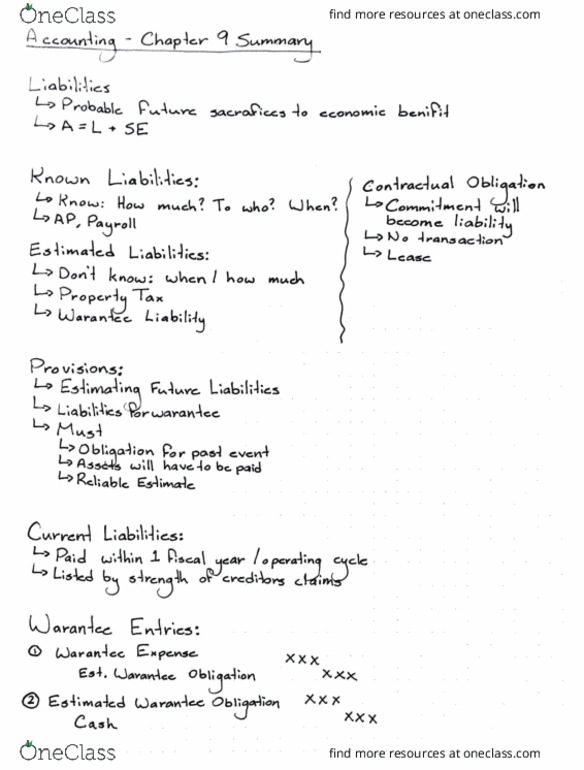 OneClass
find more resources at oneclass.com
Accounting - Chapter 9 Summary
Liabilities
↳ Probable future sacrafices to economic benifit
↳ A = L + SE
Known Liabilities:
↳ Know: How much? To who? When?
↳ AP, Payroll
Estimated Liabilities:
↳ Don't know: when / how much
↳ Property Tax
↳ Warantee Liability
Contractual Obligation
↳ Commitment will
become liability
↳ No transaction
↳ Lease
Provisions:
↳ Estimating Future Liabilities
↳ Liabilities for warantee
↳ Must
↳ Obligation for past event
↳ Assets will have to be paid
↳ Reliable Estimate
Current Liabilities:
↳ Paid within 1 fiscal year / operating cycle
↳ Listed by strength of creditors claims
Warantee Entries:
① Warantee Expense xxx
Est. Warantee Obligation xxx
② Estimated Warantee Obligation xxx
Cash xxx
OneClass
find more resources at oneclass.com